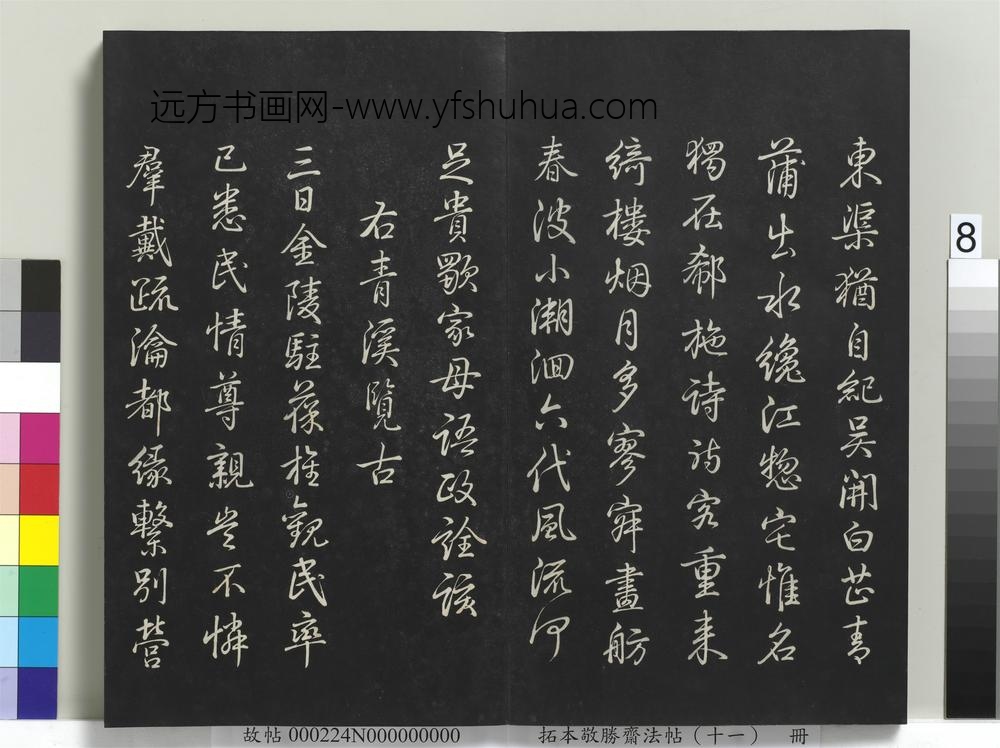 远方书画网-www.yfshuhua.com
東渠猶自紀吴開白芷青
蒲出水纔江惣宅惟名
獨在郗施詩訪客重来
綺樓烟月多寥寂畫舫
春波小溯洄六代風流何
足貴歌家母語政詮該
右青溪覽古
三日金陵駐葆旌觀民率
已悉民情尊親豈不憐
羣戴疏瀹都緣繫别營
8
故帖 000224N000000000
拓本敬勝齋法帖（十一） 冊